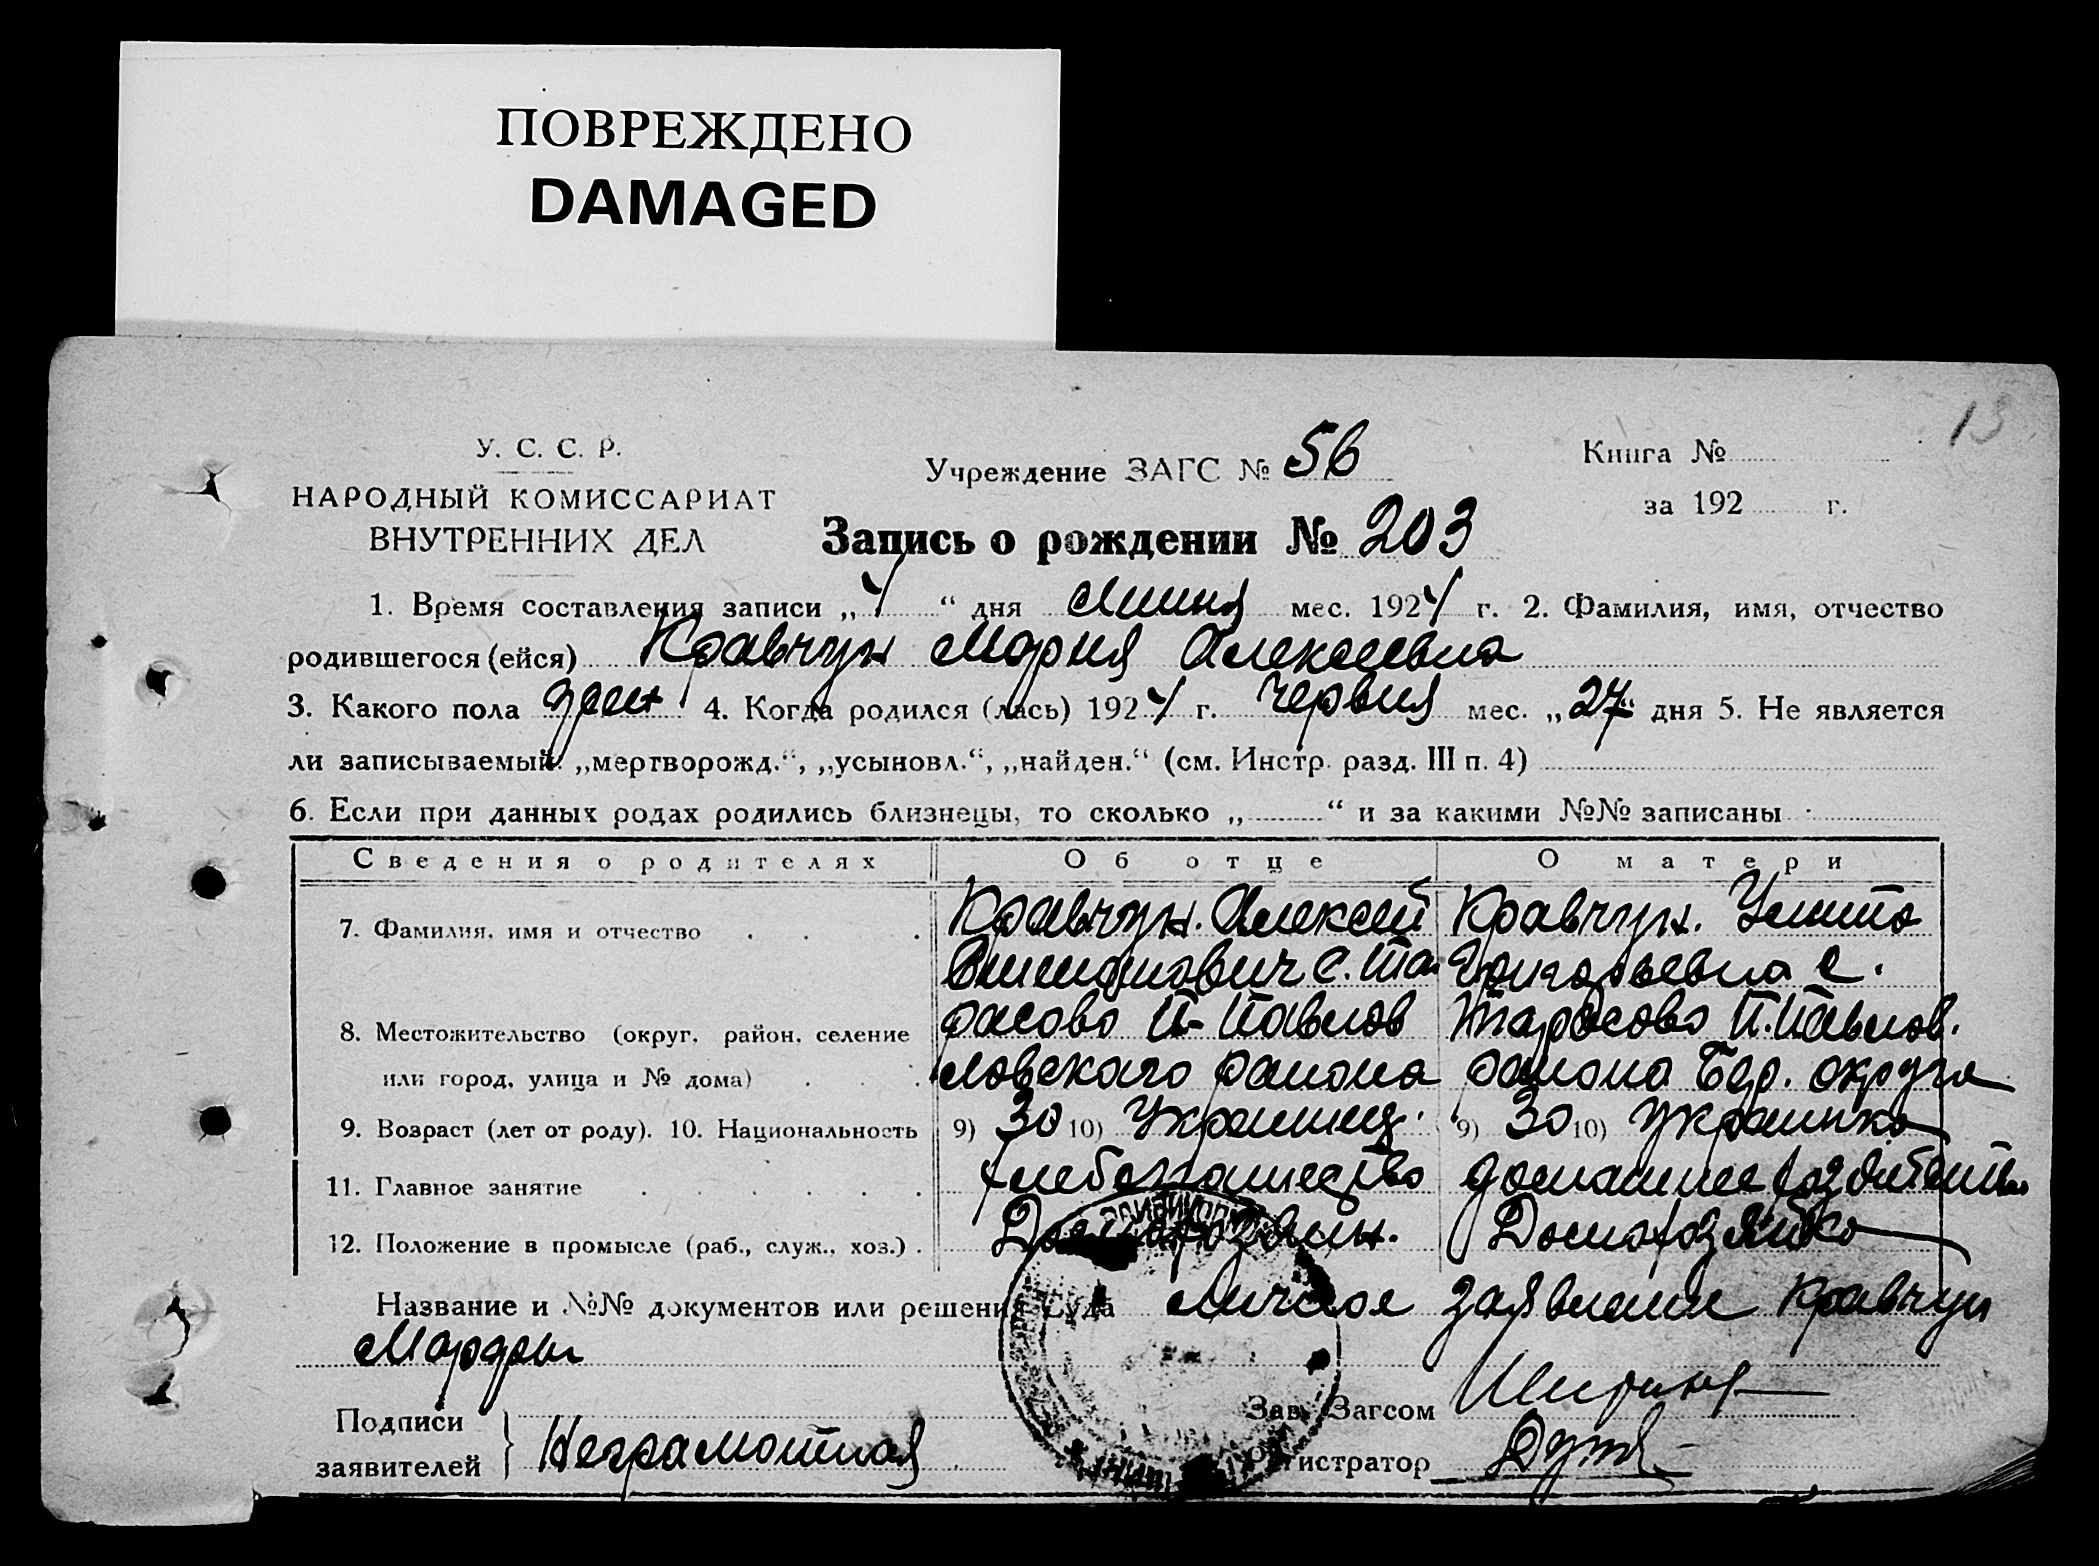 ПОВРЕЖДЕНО
DAMAGED
13
У. С. С. Р.
НАРОДНЫЙ КОМИССАРИАТ
ВНУТРЕННИХ ДЕЛ
Учреждение ЗАГС № 56
Книга №
за 192 г.
Запись о рождении № 203
1. Время составления записи „4“ дня Липня мес. 1924 г. 2. Фамилия, имя, отчество
родившегося (ейся) Кравчун Мария Алексеевна
3. Какого пола жен 4. Когда родился (лась) 1924 г. Червня мес. „27“ дня 5. Не является
ли записываемый: „мертворожд.“, „усыновл.“, „найден.“ (см. Инстр. разд. III п. 4)
6. Если при данных родах родились близнецы, то сколько „ “ и за какими №№ записаны
Сведения о родителях Об отце О матери
7. Фамилия, имя и отчество Кравчун. Алексей Кравчун.
с. Та Григорьевна с.
расово П. Павлов Тарасово П. Павлов.
8. Местожительство (округ, район, селение
или город, улица и № дома) ловского района района Бер. округа
9. Возраст (лет от роду). 10. Национальность 9) 30 10) Украинец. 9) 30 10) Украинка
11. Главное занятие хлебопашество домашнее
12. Положение в промысле (раб., служ., хоз.) Домохозяин. Домохозяйка
Название и №№ документов или решения Суда Личное заявление Кравчун
Подписи
заявителей } Неграмотная
Зав. Загсом
Регистратор